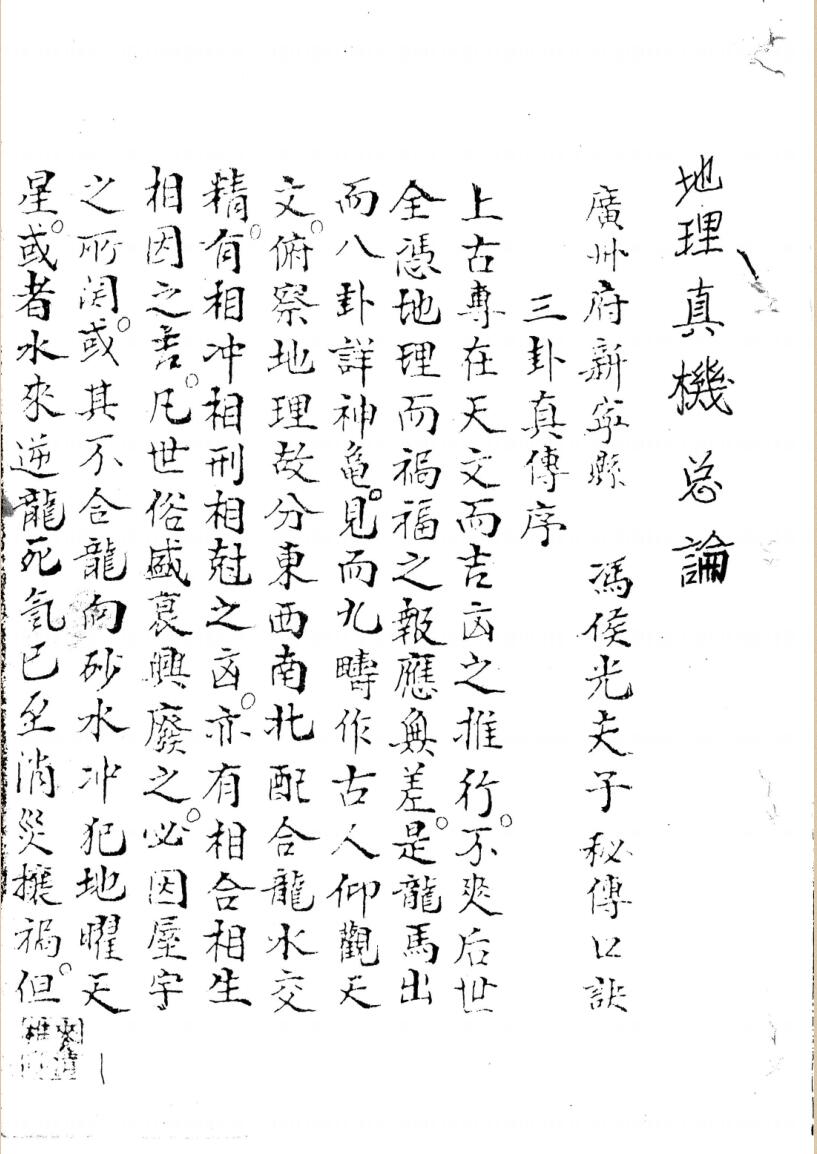 地理真機总論
廣州府新寧縣　馮侯光夫子秘傳口訣
三卦真傳序
上古專在天文而吉凶之推行。不爽后世
全憑地理而禍福之報應無差。是龍馬出
而八卦詳神龜。見而九疇作古人仰觀天
文。俯察地理故分東西南北配合龍水交
精。有相冲相刑相尅之凶。亦有相合相生
相因之吉。凡世俗盛衰興廢之。必因屋宇
之所関。或其不合龍向砂水冲犯地曜天
星。或者水來逆龍死氣已至消災攘禍。但